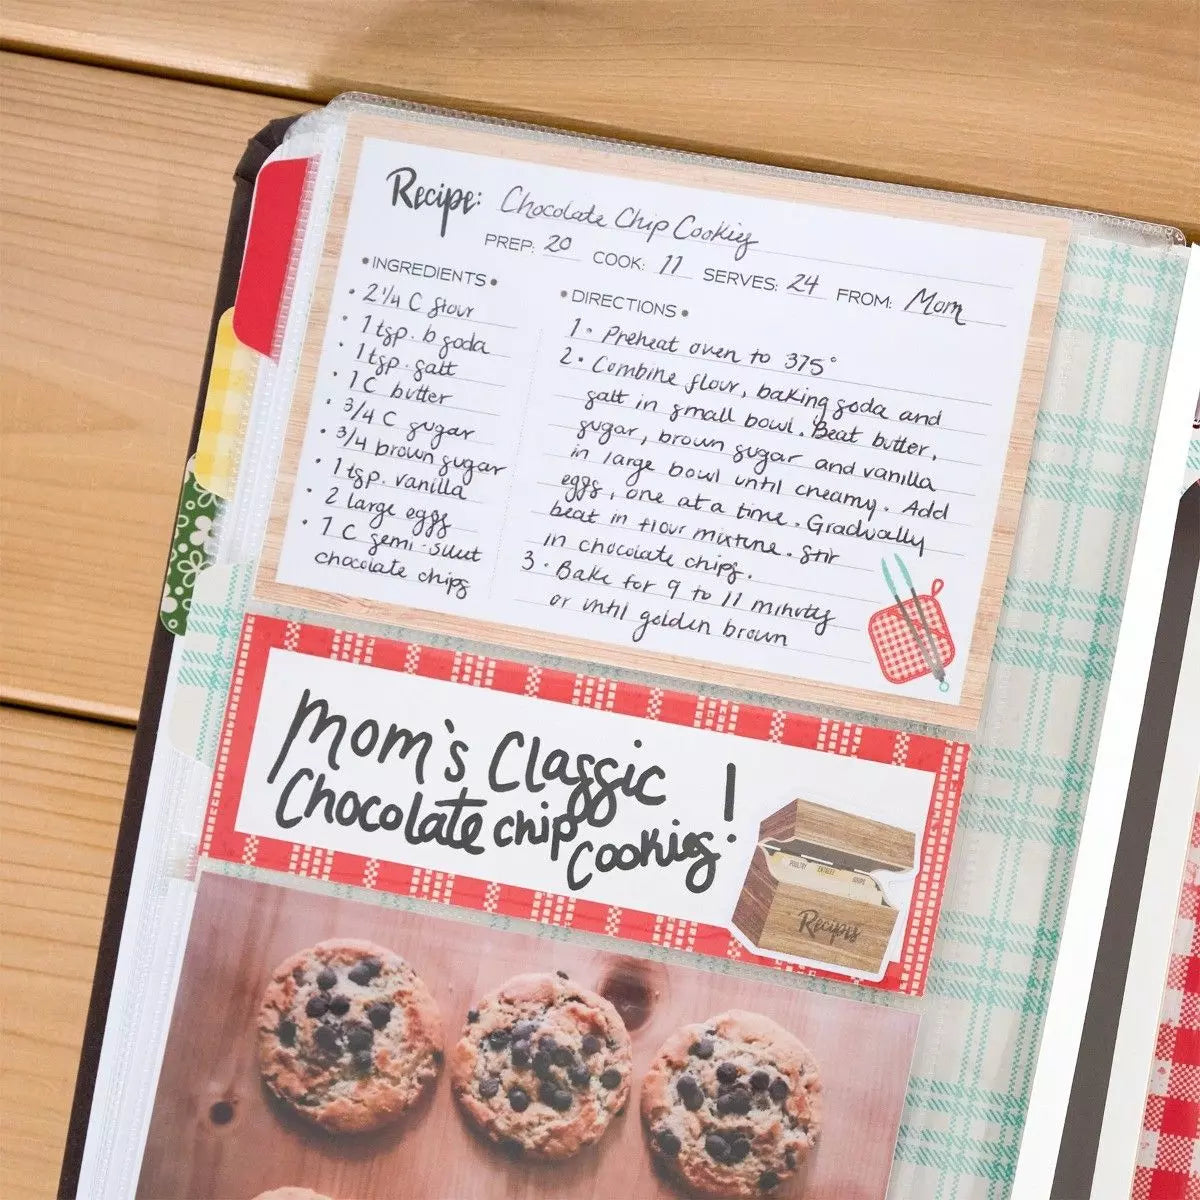 Recipe: Chocolate Chip Cookies
PREP: 20 COOK: 11 SERVES: 24 FROM: Mom
•INGREDIENTS•
• 2 1/4 C flour
• 1 tsp. b soda
• 1 tsp. salt
• 1 C butter
• 3/4 C sugar
• 3/4 brown sugar
• 1 tsp. vanilla
• 2 large eggs
• 1 C semi-sweet
chocolate chips
•DIRECTIONS•
1. Preheat oven to 375°
2. Combine flour, baking soda and
salt in small bowl. Beat butter,
sugar, brown sugar and vanilla
in large bowl until creamy. Add
eggs, one at a time. Gradually
beat in flour mixture. Stir
in chocolate chips.
3. Bake for 9 to 11 minutes
or until golden brown
Mom's Classic
Chocolate chip
Cookies!
POULTRY
ENTREES
SOUPS
Recipes